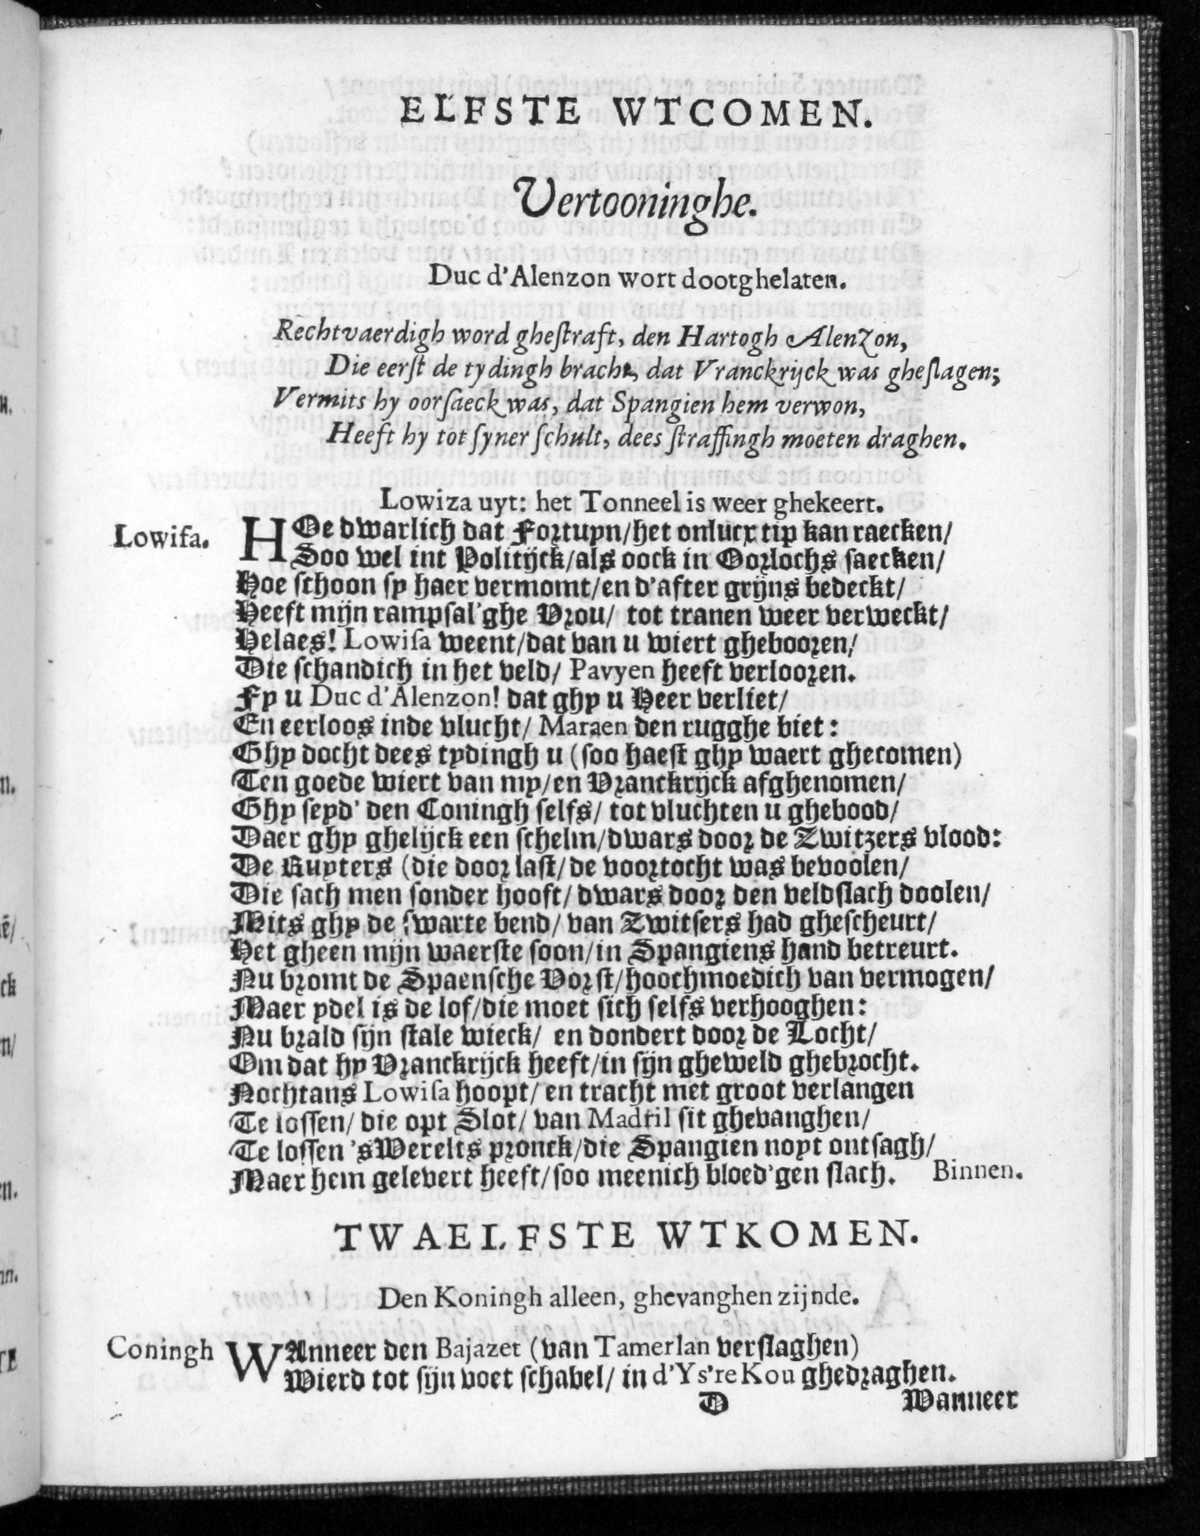 ELFSTE WTCOMEN.
Vertooninghe.
Duc d'Alenzon wort dootghelaten.
Rechtvaerdigh word ghestraft, den Hartogh Alenzon,
Die eerst de tydingh bracht, dat Vranckrijck was gheslagen;
Vermits hy oorsaeck was, dat Spangien hem verwon,
Heeft hy tot syner schult, dees straffingh moeten draghen.
Lowiza uyt: het Tonneel is weer ghekeert.
Lowisa. HOe dwarlich dat Fortuyn/het onlucx tip kan raecken/
Soo wel int Politijck/als oock in Oorlochs saecken/
Hoe schoon sy haer vermomt/en d'after grijns bedeckt/
Heeft mijn rampsal'ghe Vrou/ tot tranen weer verweckt/
Helaes! Lowisa weent/dat van u wiert ghebooren/
Die schandich in het veld/ Pavyen heeft verlooren.
Fy u Duc d'Alenzon! dat ghy u Heer verliet/
En eerloos inde vlucht/ Maraen den rugghe biet:
Ghy docht dees tydingh u (soo haest ghy waert ghecomen)
Ten goede wiert van my/en Vranckrijck afghenomen/
Ghy seyd' den Coningh selfs/ tot vluchten u ghebood/
Daer ghy ghelijck een schelm/dwars door de Zwitzers vlood:
De Ruyters (die door last/de voortocht was bevoolen/
Die sach men sonder hooft/ dwars door den veldslach doolen/
Mits ghy de swarte bend/ van Zwitsers had ghescheurt/
Het gheen mijn waerste soon/in Spangiens hand betreurt.
Nu bromt de Spaensche Vorst/hoochmoedich van vermogen/
Maer ydel is de lof/die moet sich selfs verhooghen:
Nu brald sijn stale wieck/ en dondert door de Locht/
Om dat hy Vranckrijck heeft/in sijn gheweld ghebrocht.
Nochtans Lowisa hoopt/ en tracht met groot verlangen
Te lossen/ die opt Slot/ van Madril sit ghevanghen/
Te lossen 'sWerelts pronck/die Spangien noyt ontsagh/
Maer hem gelevert heeft/soo meenich bloed'gen slach. Binnen.
TWAELFSTE WTKOMEN.
Den Koningh alleen, ghevanghen zijnde.
Coningh WAnneer den Bajazet (van Tamerlan verslaghen)
Wierd tot sijn voet schabel/ in d'Ys're Kou ghedraghen.
D Wanneer